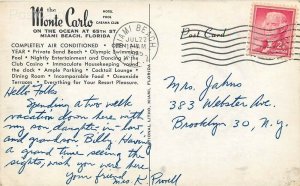 the
Monte Carlo
HOTEL
POOL
CABANA CLUB
ON THE OCEAN AT 65TH ST.
MIAMI BEACH, FLORIDA
COMPLETELY AIR CONDITIONED • OPEN ALL
YEAR • Private Sand Beach • Olympic Swimming
Pool • Nightly Entertainment and Dancing in the
Club Casino • Immaculate Housekeeping 'round
the clock • Ample Parking • Cocktail Lounge •
Dining Room • Incomparable Food • Oceanside
Terraces • Everything for Your Resort Pleasure.
MIAMI BEACH
JUL 27
Post Card
Hello Folks
Spending a two week
vacation down here with my
son, daughter-in-law,
and grandson. Billy. Having
a grand time seeing the
sights, wish you were here
yours friend Mrs. K Powell
Mrs. Jahns
383 Webster Ave.
Brooklyn 30, N.Y.